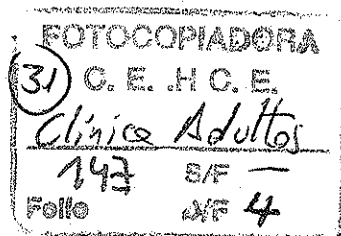 FOTOCOPIADORA
31 C. E. .H C. E.
Clínica Adultos
147 S/F —
Folio D/F 4